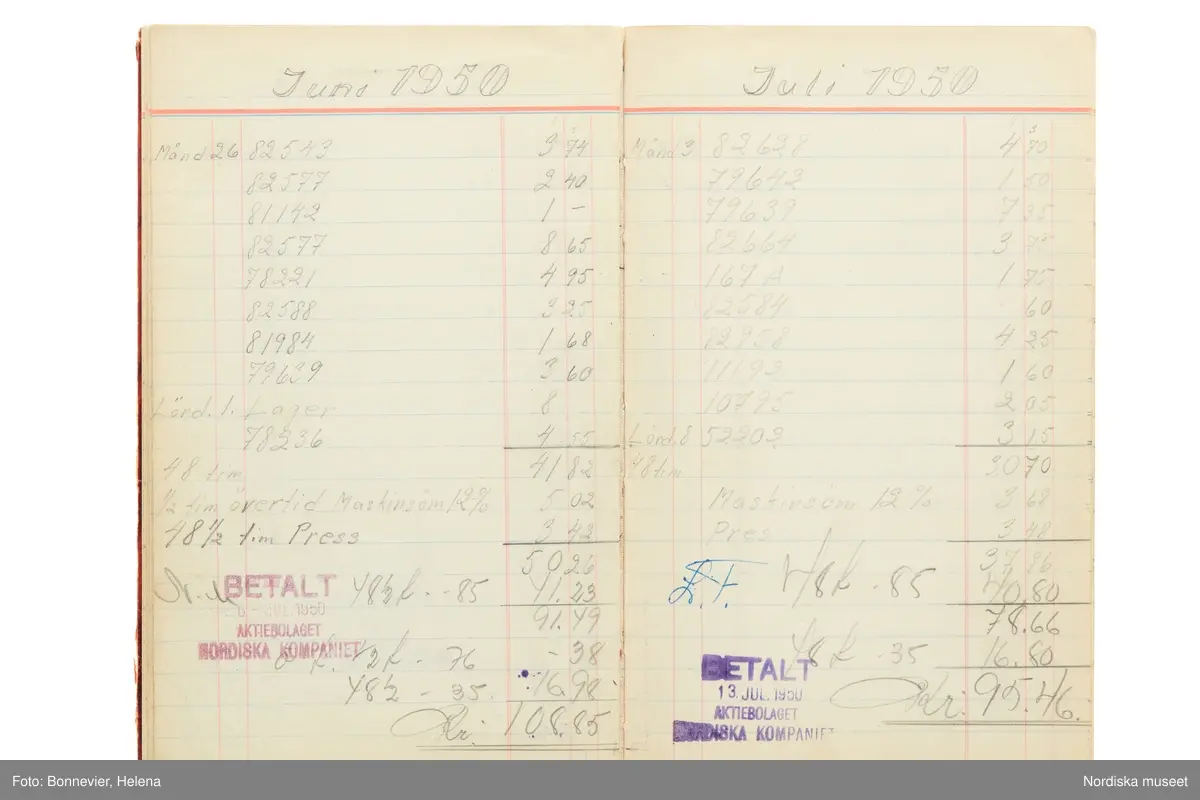 Juni 1950
Månd 26 82543 3 74
82577 2 40
81142 1 -
82577 8 65
78221 4 95
82588 3 25
81984 1 68
79639 3 60
Lörd. 1. Lager 8
78236 4 55
48 tim 41 82
1/2 tim övertid Maskinsöm 12% 5 02
48 1/2 tim Press 3 42
50 26
BETALT 48½ - 85 41.23
JUL. 1950 91.49
AKTIEBOLAGET
NORDISKA KOMPANIET ½ - 76 - 38
48½ - 35. 16.98
Kr. 108.85
Juli 1950
Månd 3 82628 4 70
79642 1 50
79639 7 35
82664 3 75
167 A 1 75
82584 60
82958 4 25
11192 1 60
10795 2 05
Lörd. 8 52202 3 15
48 tim 30 70
Maskinsöm 12 % 3 68
Press 3 48
37 86
48 - 85 40.80
78.66
48 - 35 16.80
BETALT
13. JUL. 1950 Kr. 95.46.
AKTIEBOLAGET
NORDISKA KOMPANIET
Foto: Bonnevier, Helena
Nordiska museet